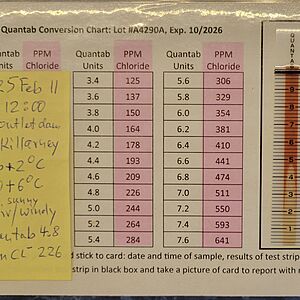 Quantab Conversion Chart: Lot #A4290A, Exp. 10/2026
Quantab Units PPM Chloride Quantab Units PPM Chloride
3.4 125 5.6 306
3.6 137 5.8 329
3.8 150 6.0 354
4.0 164 6.2 381
4.2 178 6.4 410
4.4 193 6.6 441
4.6 209 6.8 474
4.8 226 7.0 511
5.0 244 7.2 550
5.2 264 7.4 593
5.4 284 7.6 641
PPM
25 Feb 11
12:00
outlet dam
Killarney
+2°C
+6°C
sunny
windy
4.8
226
d stick to card: date and time of sample, results of test strip
strip in black box and take a picture of card to report with r
QUANTA
9
8
7
6
5
4
3
2
1